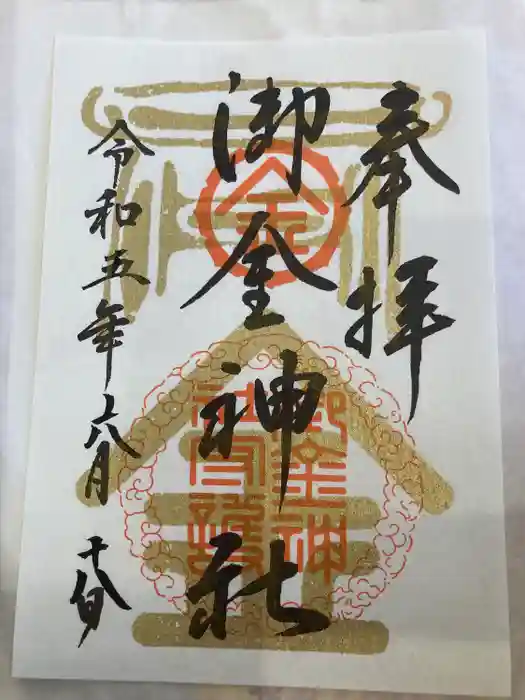 奉拝
御金神社
令和五年六月
十八日
金
御金神
社守護